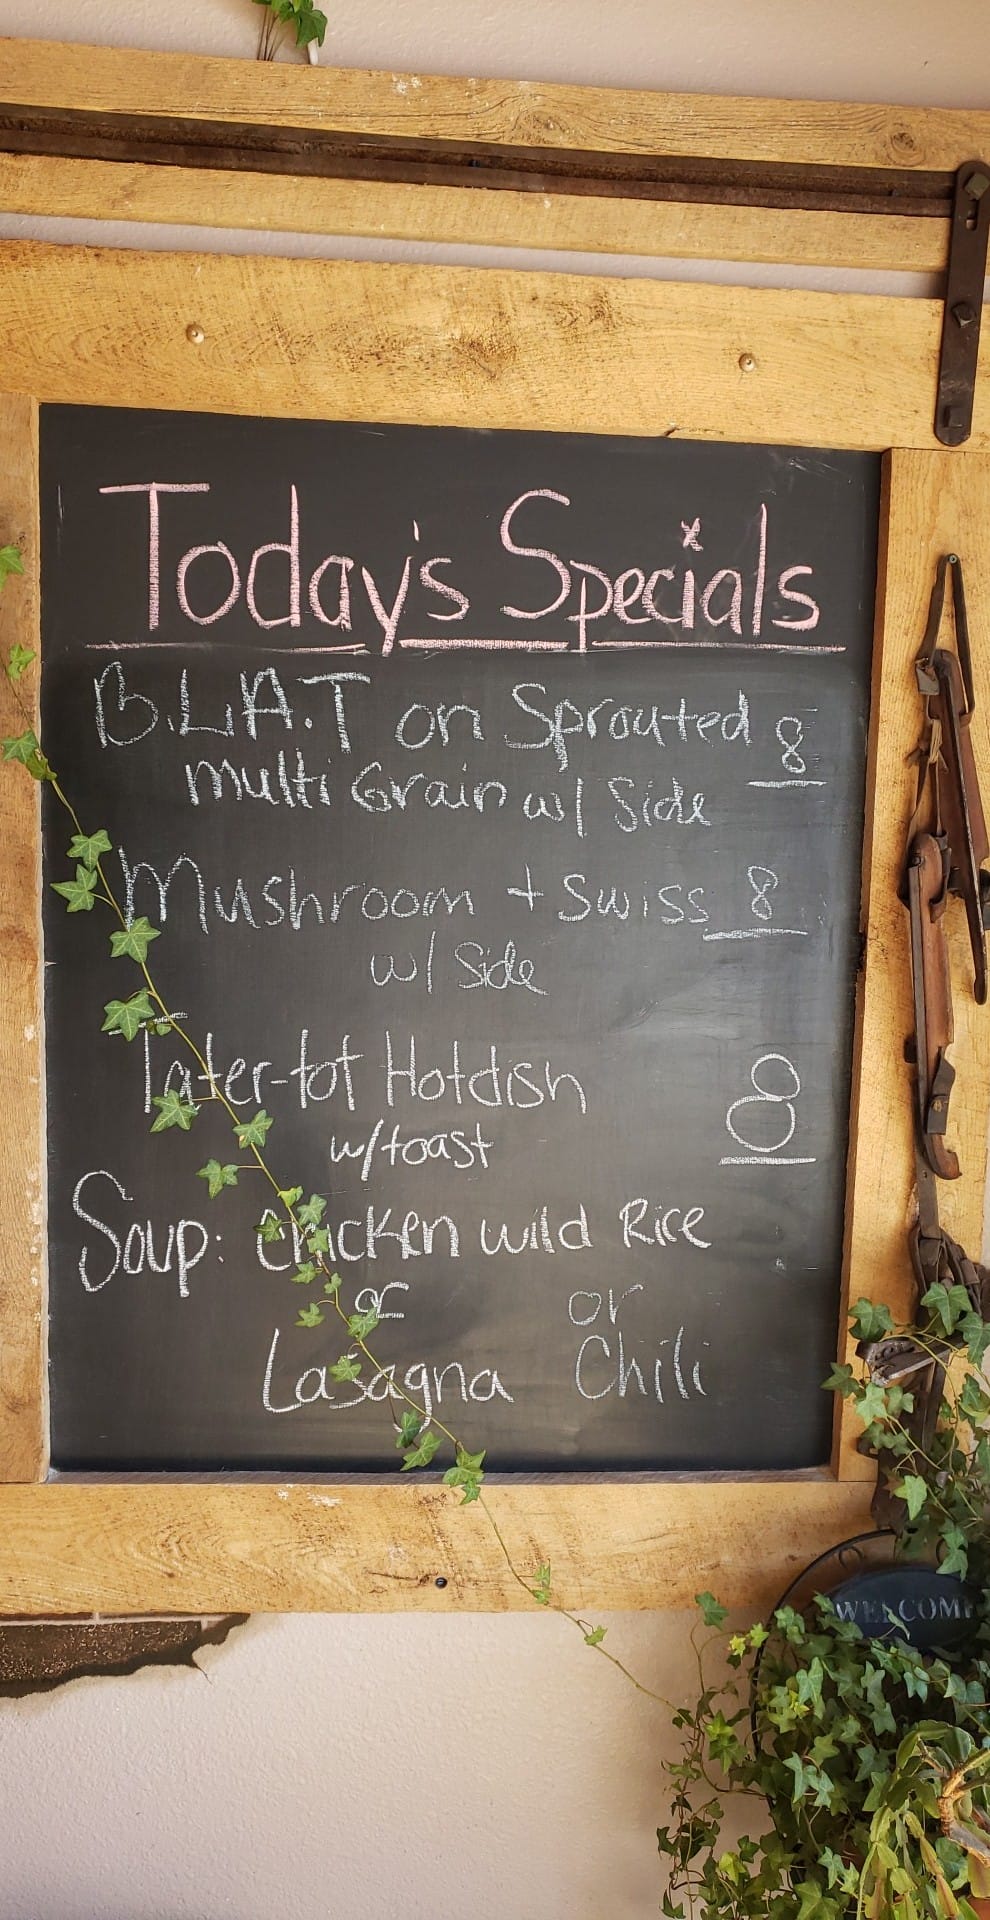 Today's Specials
B.L.A.T on Sprouted 8
multi Grain w/ Side
Mushroom + Swiss 8
w/ Side
Tater-tot Hotdish 8
w/toast
Soup: Chicken Wild Rice
or or
Lasagna Chili
WELCOME